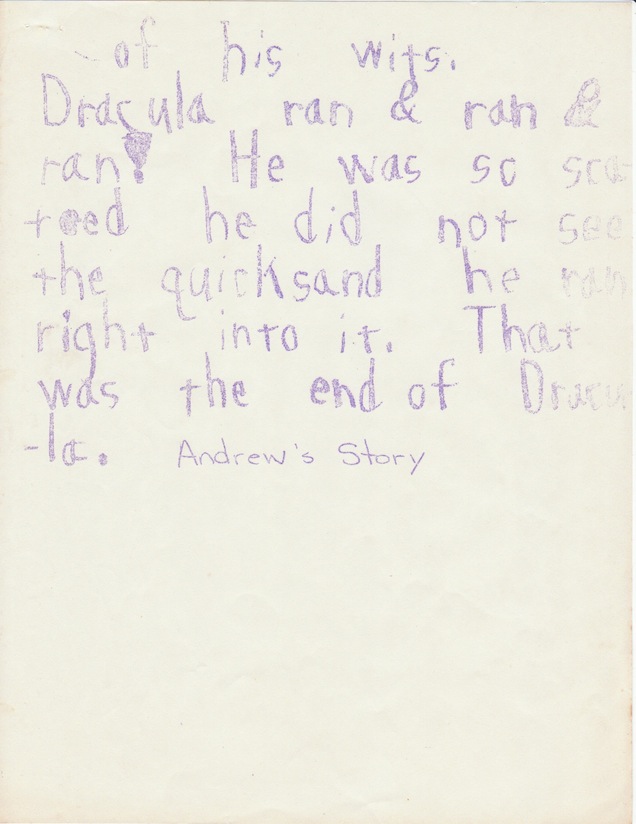 of his wits.
Dracula ran & ran &
ran! He was so sca-
reed he did not see
the quicksand he ran
right into it. That
was the end of Dracu
-la. Andrew's Story